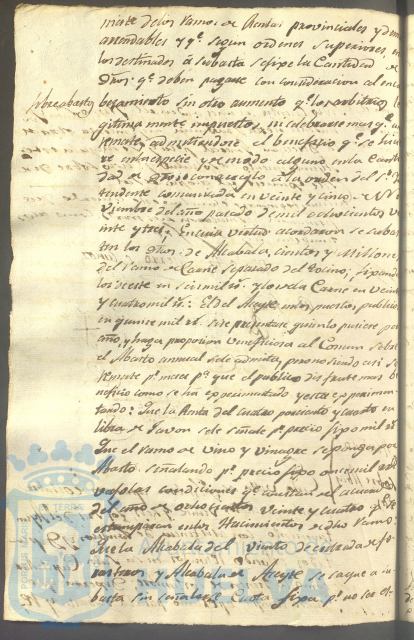 mente de los Ramos de Rentas provinciales y dem
arrendables y qe. segun ordenes superiores, en
los destinados á subasta se fixe la Cantidad de
Dros. qe. deben pagarse con consideracion al enca
Sobre abastos
bezamiento sin otro aumento qe. los arbitrios le
gitima mente impuestos, ni celebrarse mas qe. un
remate, admitiendose el beneficio qe. se hici
re en la especie y de modo alguno en la Canti
dad de dros con arreglo a la orden del Sr. Yn
tendente comunicada en veinte y cinco de No
viembre del año pasado de mil ochocientos ve
inte y tres: En cuia virtud acordaron se subas
ten los dros. de Alcabala, cientos y Millones
del Ramo de Carne separado del tocino, fixando
los de este en seis mil rs. y los de la Carne en veinte
y cuatro mil rs.: El del Aceyte en los puestos publicos
en quince mil rs.
año, y haga proposicion veneficiosa al Comun sobre
el Abasto annual se le admita,
remate pr. meses pa. que el publico disfrute mas be
neficio como se ha experimentado y esta experimen
tando: Que la Renta del cuatro por ciento y cuarto en
libra de Javon se le señale pr. precio fixo mil rs.
Que el Ramo de vino y vinagre se ponga por
Abasto señalando pr. precio fixo once mil rs.
vajo las condiciones qe. constan del acuerdo
del año de ochocientos veinte y cuatro qe. se
estamparan en los Hacimientos de dho Ramo.
Que la Alcabala del viento de entrada de fo
rasteros y Alcabala de Aceyte se saque a su
basta sin señalarse Cuota fixa pr. no ser es